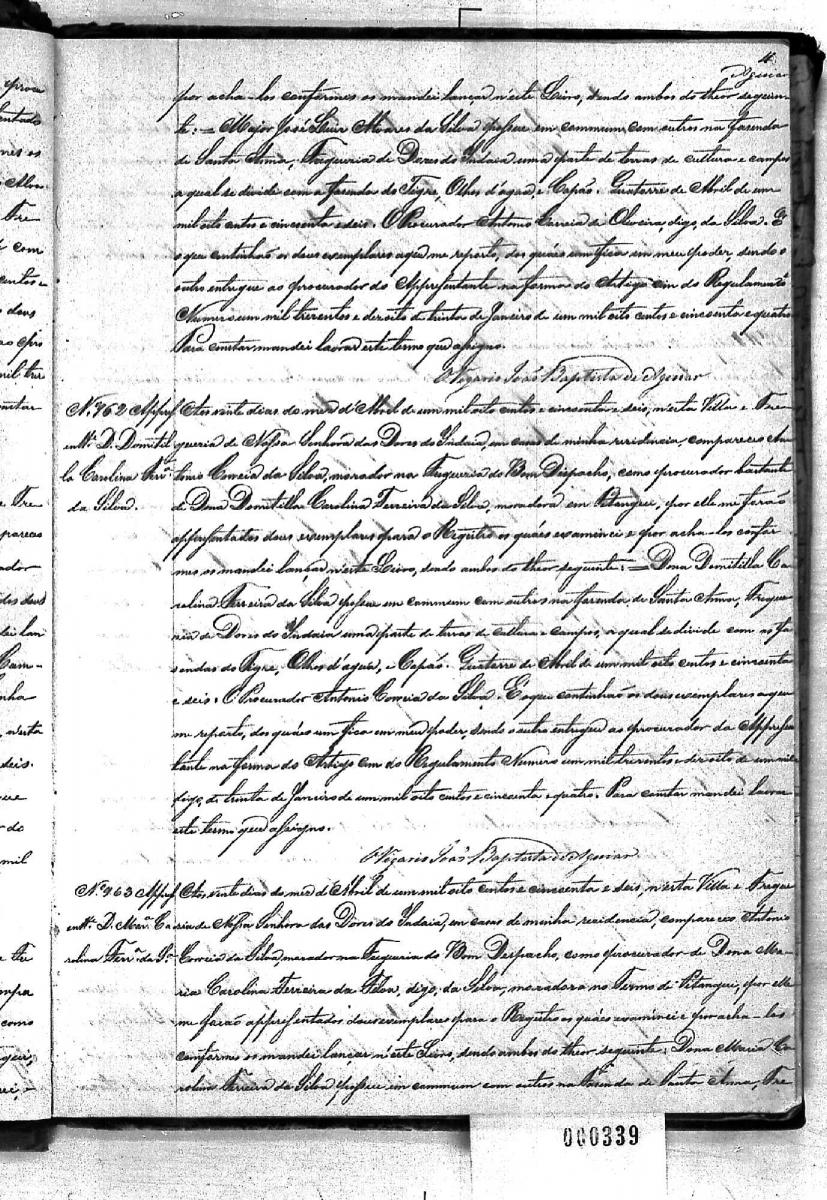 4
Aguiar
por acha-los conformes os mandei lançar n'este Livro, sendo ambos do theor seguin-
te: = Major José Luiz Alvares da Silva possue em commum com outros na fazenda
de Santa Anna, Fregueria de Dores do Indaia uma parte de terras de cultura e campos
a qual se divide com a fazenda do Tigre, Olhos d'agua, e Capão. Quatorze de Abril de um
mil oito centos e cincoenta e seis. O Procurador Antonio Correia de Oliveira, digo, da Silva. E
o que continhão os dous exemplares a que me reporto, dos quáes um fica em meu poder, sendo o
outro entregue ao procurador do Appresentante na forma do Artigo cem do Regulamento
Numero um mil trezentos e dezoito de trinta de Janeiro de um mil oito centos e cincoenta e quatro.
Para constar mandei lavrar este termo que assigno.
O Vigario João Baptista de Aguiar
N.º 762 Appres Aos vinte dias do mez d'Abril de um mil oito centos e cincoenta e seis, n'esta Villa e Fre-
en.te D. Domitil gueria de Nossa Senhora das Dores do Indaia, em casas de minha residencia, compareceo An-
la Carolina Ferr.a tonio Correia da Silva, morador na Fregueria do Bom Despacho, como procurador bastante
da Silva. de Dona Domitilla Carolina Ferreira da Silva, moradora em Pitangui, por elle me forão
appresentados dous exemplares para o Registro os quáes examinei e por acha-los confor
mes os mandei lançar n'este Livro, sendo ambos do theor seguinte: = Dona Domitilla Ca-
rolina Ferreira da Silva possue em commum com outros na fazenda de Santa Anna, Fregue-
ria de Dores do Indaia uma parte de terras de cultura e campos, a qual se divide com as fa-
sendas do Tigre, Olhos d'agua, e Capão. Quatorze de Abril de um mil oito centos e cincoenta
e seis. O Procurador Antonio Correia da Silva. E o que continhão os dous exemplares a que
me reporto, dos quáes um fica em meu poder, sendo o outro entregue ao procurador da Appresen
tante na forma do Artigo cem do Regulamento Numero um mil trezentos e dezoito de um mil
digo, de trinta de Janeiro de um mil oito centos e cincoenta e quatro. Para constar mandei lavrar
este termo que assigno.
O Vigario João Baptista de Aguiar
N.º 763 Appres Aos vinte dias do mez de Abril de um mil oito centos e cincoenta e seis, n'esta Villa e Fregue
en.te D. Mar.a Ca ria de Nossa Senhora das Dores do Indaia, em casas de minha residencia, compareceo Antonio
rolina Ferr.a da S.a Correia da Silva, morador na Fregueria do Bom Despacho, como procurador de Dona Ma-
ria Carolina Ferreira da Silva, digo, da Silva, moradora no Termo de Pitangui, por elle
me forão appresentados dous exemplares para o Registro os quáes examinei e por acha-los
conformes os mandei lançar n'este Livro, sendo ambos do theor seguinte: Dona Maria Ca
rolina Ferreira da Silva possue em commum com outros na Fazenda de Santa Anna, Fre
000339